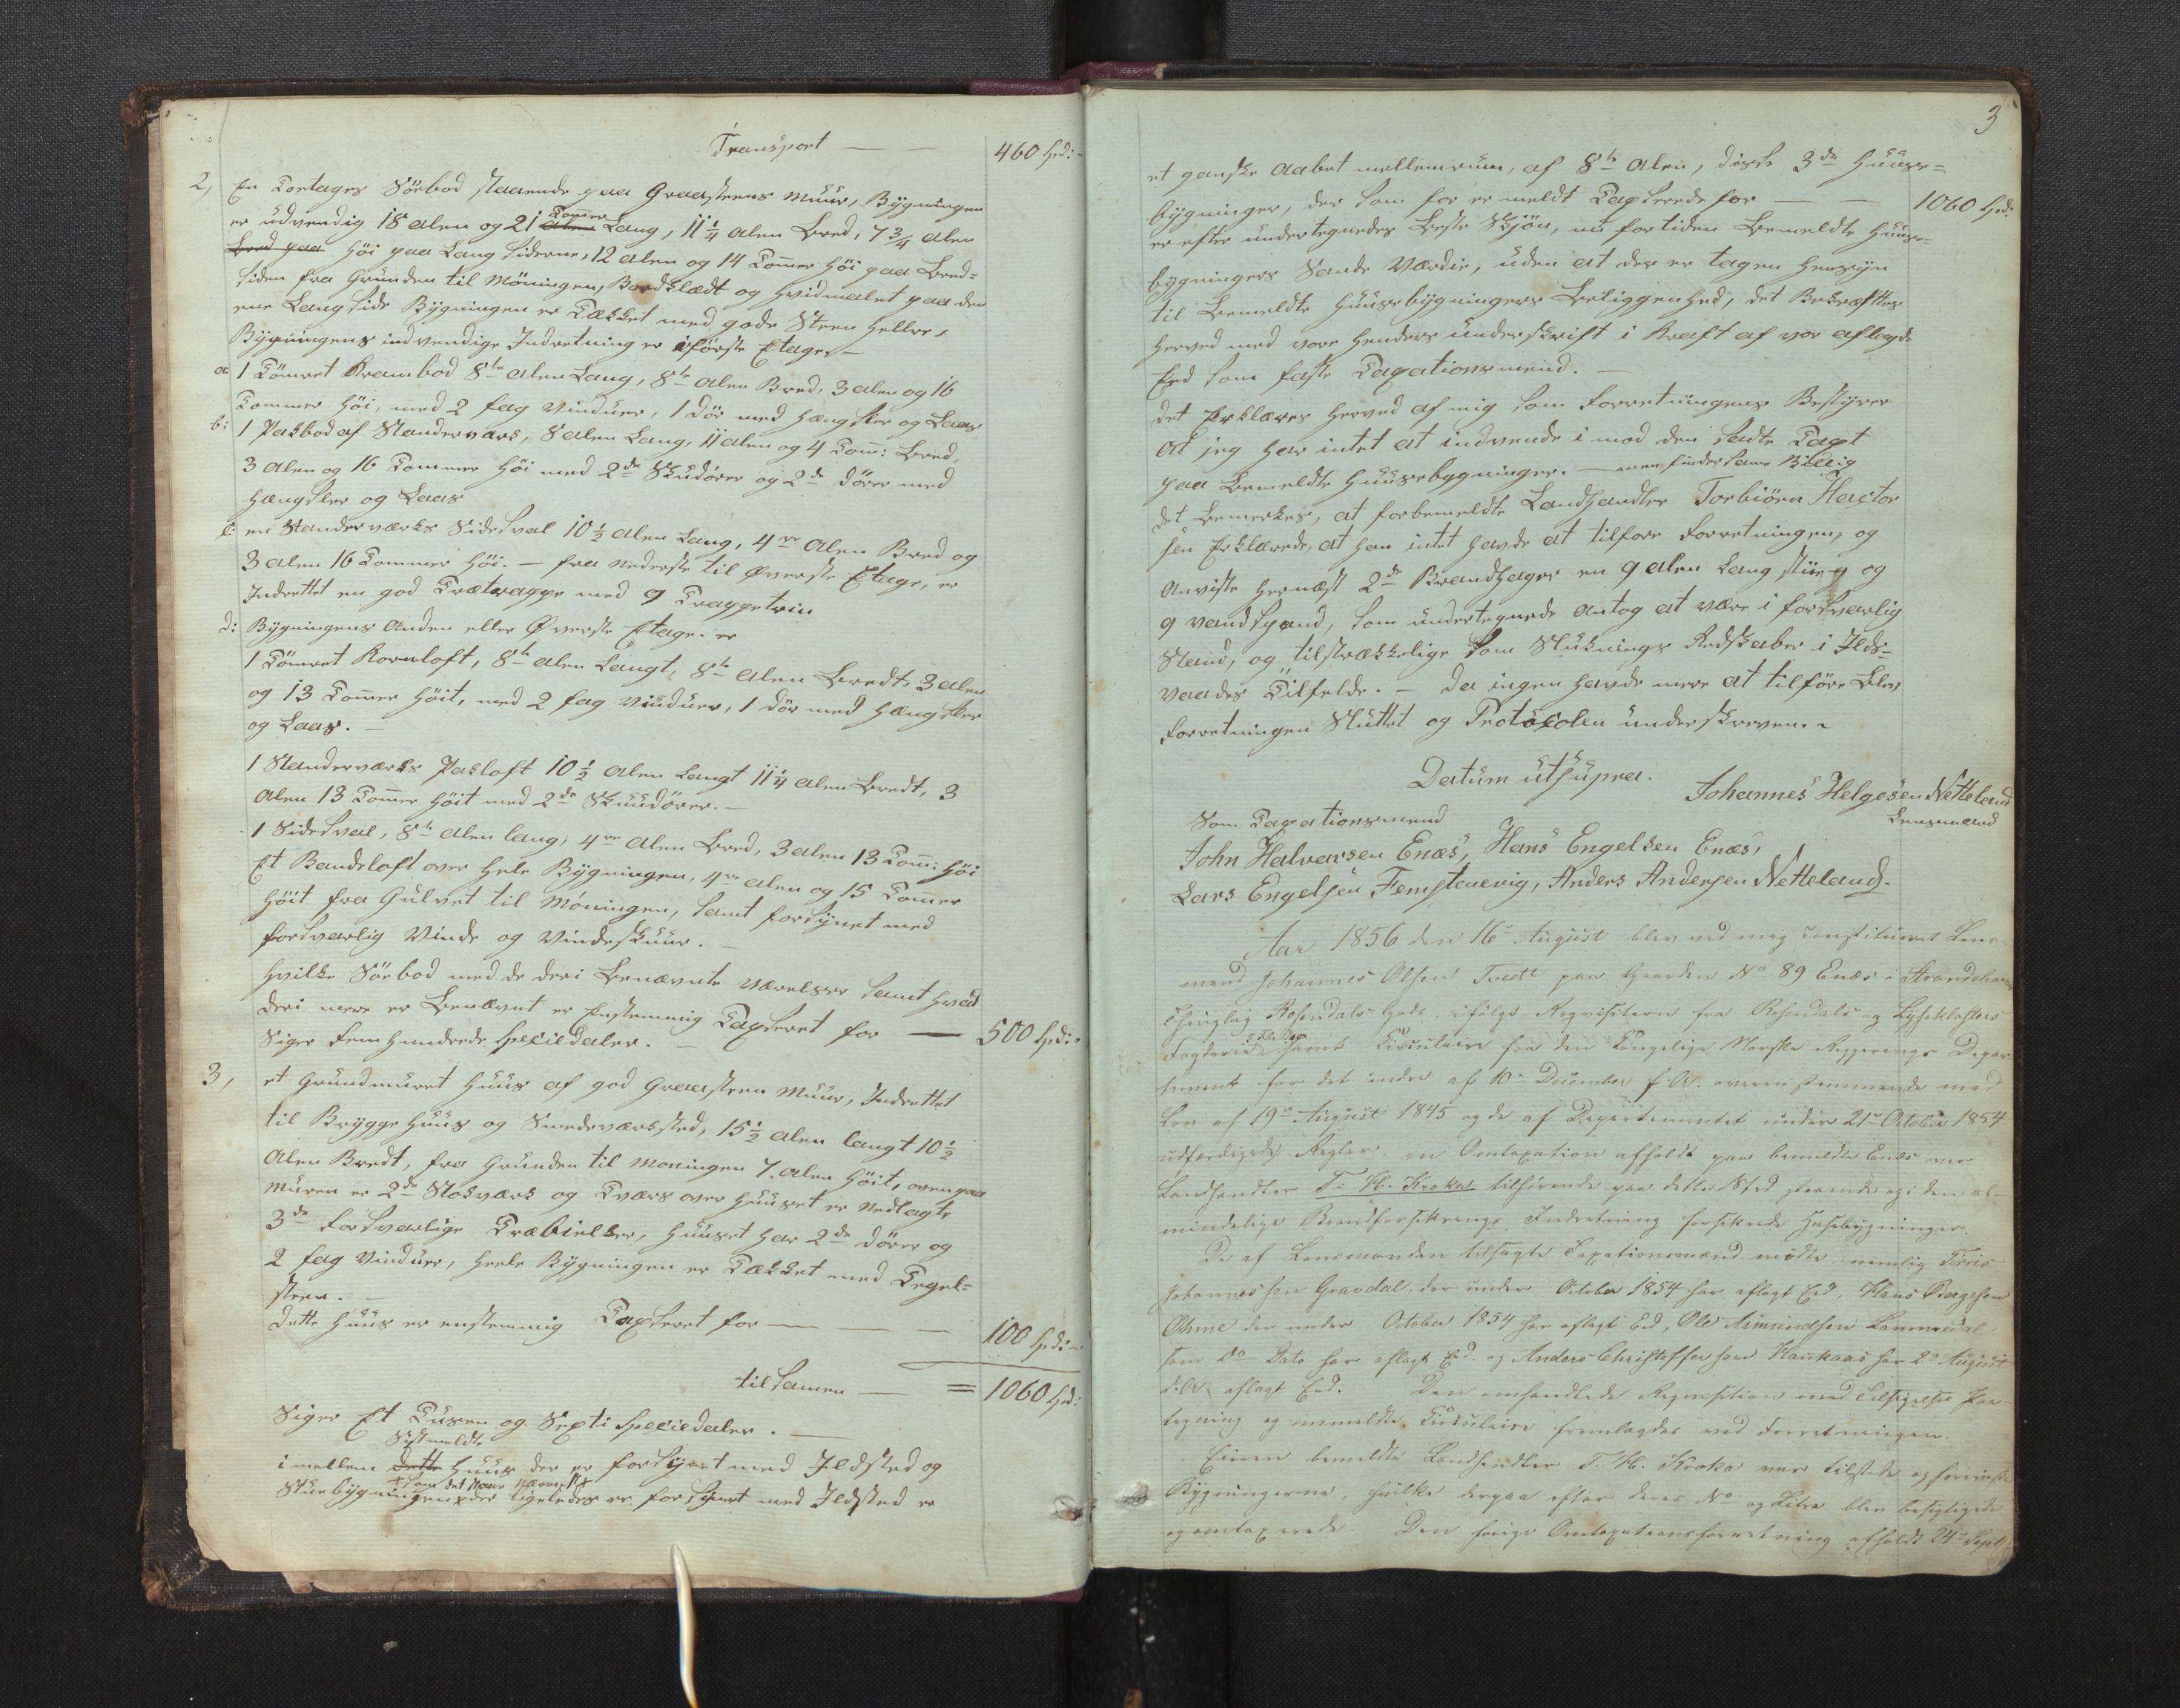 Transport — — 460 Spd:
2, En Toetages Söebod staaende paa Graasteens Muur, Bygningen
er udvendig 18 alen og 21 Tommer Lang, 11 1/4 Alen Bred, 7 3/4 Alen
Bred paa höi paa Lang siderne, 12 Alen og 14 Tommer höi paa Bred-
siden fra Grunden til Möningen, Bordklædt og Hvidmalet paa den
ene Langside Bygningen er Tækket med gode Steen Heller,
Bygningens indvendige Indretning er i förste Etage. —
a: 1 Tömret Krambod 8te alen Lang, 8te alen Bred, 3 alen og 16
Tommer höi, med 2 fag Vinduer, 1 Dör med Hængsler og Laas
b: 1 Pakbod af Standerværk, 8 alen Lang, 11 alen og 4 Tom: Bred,
3 alen og 16 Tommer höi med 2de Skudörer og 2de dörer med
Hængsler og Laas
c: en Standerværks Sidesval 10 1/2 alen Lang, 4re Alen Bred og
3 alen 16 Tommer höi. — fra Nederste til Øverste Etage, er
Indrettet en god Trætrappe med 9 Trappetrin
d: Bygningens Anden eller Øverste Etage. er
1 Tömret Kornloft, 8te alen Langt, 8te alen Bredt, 3 alen
og 13 Tommer höit, med 2 fag Vinduer, 1 Dör med Hængsler
og Laas. —
1 Standerværks Pakloft 10 1/2 alen Langt 11 1/4 alen Bredt, 3
Alen 13 Tommer höit med 2de Skuudörer. —
1 Sidesval, 8te alen lang, 4re Alen Bred, 3 alen 13 Tom: höi
Et Bandeloft over hele Bygningen, 4re alen og 15 Tommer
höit fra Gulvet til Möningen, samt forsynet med
forsvarlig Vinde og Vindeskuur. —
hvilke Söebod med de deri Benævnte Værelser samt hvad
deri mere er Benævnt er Enstemmig Taxseret for — 500 Spd:
Siger Fem Hundrede Speciedaler. —
3, et Grundmuret Huus af god Graasteen Muur, Indrettet
til Bryggehuus og Smedeværksted, 15 1/2 alen langt 10 1/2
Alen Bredt, fra Grunden til Moningen 7. Alen höit, oven paa
Muren er 2de Stokværk og Tværs over Huuset er Nedlagte
3de forsvarlige Træbielker, Huuset har 2de Dörer og
2 fag Vinduer, heele Bygningen er Tækket med Tegel-
steen. —
Dette Huus er enstemmig Taxseret for — — — 100 Spd:
tilsamen — = 1060 Spd:
Siger Et Tusen og Sexti Speciedaler. —
Sistmeldte
imellem dette Huus der er forsynet med Ildsted og
som det staar Nærmest
Stuebygningen der ligeledes er forsynet med Ildsted er
3
et ganske aabet mellemrum, af 8te Alen, disse 3de Huuse-
bygninger, der som for er meldt Taxserede for — — 1060 Spd:
er efter undertegnedes Beste Skjön, nu fortiden Bemeldte Huuse-
bygningers Sande Værdie, uden at der er tagen Hensyn
til Bemeldte Huusebygningers Beliggenhed, det Bekræftes
Herved med vore Henders underskrift i Kraft af vor aflagde
Eed som faste Taxationsmænd. —
det Erklæres Herved af mig som Forretningens Bestyrer
At jeg har intet at indvende i mod den sadte Taxt
paa Bemeldte Huusebygninger. — men finder samme Billig
det Bemerkes, at forbemeldte Landhandler Torbiörn Hactor
sen Erklærede, at han intet havde at tilföre Forretningen, og
Anviste Hernæst 2de Brandhager en 9 alen Lang stiige og
9 vandspand, som undertegnede antog at være i forsvarlig
Stand, og tilstrækkelige som Sluknings Redskaber i Ilds-
vaades Tilfelde. — da ingen havde mere at tilföre Blev
Forretningen Sluttet og Protocolen underskreven. —
Datum utsupra.
Johannes Helgesen Netteland
Lensmand
Som Taxationsmend
John Halvarsen Enæs, Hans Engelsen Enæs,
Lars Engelsen Femstenevig, Anders Andersen Netteland.
Aar 1856 den 16de August blev ved mig constitueret Lens-
mand Johannes Olsen Tvedt paa Gaarden No 89 Enæs i Strandebarms
Thinglag Rosendals Gods ifølge Reqvisition fra Rosendals og Lyseklosters
Fogderie samt Circulaire fra den Kongelige Norske Regjerings Depar
tement for det indre af 10de December f. A. overensstemmende med
Lov af 19de August 1845 og de af Departementet under 21de October 1854
udfærdigede Regler en Omtaxation afholdt paa bemeldte Enæs over
Landhandler T. H. Kroka tilhörende paa dette Sted staaende og i den al-
mindelige Brandforsikrings Indretning forsikrede Husebygninger.
De af Lensmanden tilsagte Taxationsmænd mödte, nemlig
Johannessen Gravdal, der under October 1854 har aflagt Eed, Hans Bergesen
Oahme der under October 1854 har aflagt Ed, Ole Asmundsen
som Do Dato har aflagt Ed. og Anders Christoffersen Haukaas har 2de August
d. A. aflagt Eed. Den omhandlede Reqvisition med Tilsigelses Paa-
tegning og ommeldte Circulaire fremlagdes ved Forretningen.
Eieren bemeldte Landhandler T. H. Kroka var tilstede og foreviste
Bygningerne, hvilke derpaa efter deres No og Litra blev besigtigede
og omtaxerede Den forige Omtaxationsforretning afholdt 24de Sept